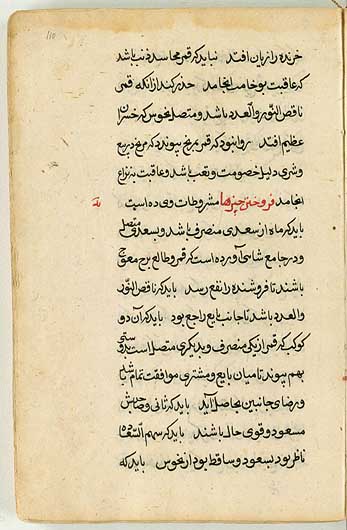 110
خرنده را زیان افتد نباید که قمر مجاسد ذنب باشد
که عاقبت بوخامت انجامد حذر کند از آنکه قمر
ناقص النور و العدد باشد و متصل بنحوس که خسران
عظیم افتد روا نبود که قمر بمریخ پیوندد که مریخ در بیع
و شری دلیل خصومت و تعب باشد و عاقبت بنزاع
انجامد فروختن چیزها مشروطات وی ده است
باید که ماه از سعدی منصرف باشد و بسعدی متصل
و در جامع شاهی آورده است که قمر و طالع برج معوج
باشند تا فروشنده را نفع رسد باید که ناقص النور
والعدد باشد تا جانب بایع راجع بود باید که آن دو
کوکب که قمر از یکی منصرف و بدیگری متصل است بدوستی
بهم پیوند تا میان بایع و مشتری موافقت تمام باشد
و رضای جانبین بحاصل آید باید که ثانی و صاحبش
مسعود و قوی حال باشند باید که سهم السعاده
ناظر بود بسعود و ساقط بود از نحوس باید که